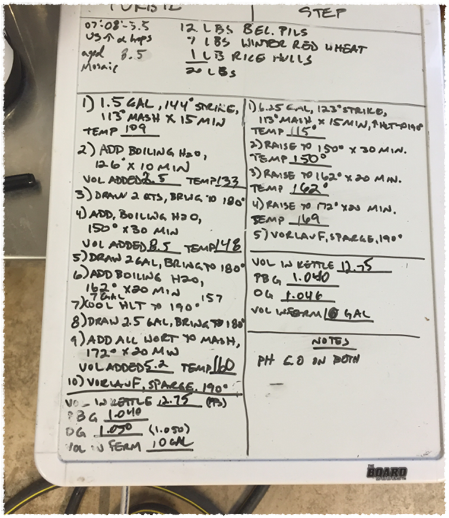 TURBID
STEP
07:08 - 3.5
US ↑ α hops
aged 8.5
Mosaic
12 LBS BEL. PILS
7 LBS WINTER RED WHEAT
1 LB RICE HULLS
20 LBS
1) 1.5 GAL, 144° STRIKE,
113° MASH X 15 MIN
TEMP 109
2) ADD BOILING H2O,
126° X 10 MIN
VOL ADDED 2.5 TEMP 133
3) DRAW 2 QTS, BRING TO 180°
4) ADD, BOILING H2O,
150° X 30 MIN
VOL ADDED 8.5 TEMP 148
5) DRAW 2 GAL, BRING TO 180°
6) ADD BOILING H2O,
162° X 20 MIN
7 GAL 157
7) COOL HLT TO 190°
8) DRAW 2.5 GAL, BRING TO 180°
9) ADD ALL WORT TO MASH,
172° X 20 MIN
VOL ADDED 5.2 TEMP 160
10) VORLAUF, SPARGE, 190°
VOL IN KETTLE 12.75
PBG 1.040
OG 1.050 (1.050)
VOL IN FERM 10 GAL
1) 6.25 GAL, 123° STRIKE,
113° MASH X 15 MIN, ↑ HLT TO 190°
TEMP 115°
2) RAISE TO 150° X 30 MIN.
TEMP 150°
3) RAISE TO 162° X 20 MIN.
TEMP 162°
4) RAISE TO 172° X 20 MIN.
TEMP 169
5) VORLAUF, SPARGE, 190°
VOL IN KETTLE 12.75
PBG 1.040
OG 1.046
VOL IN FERM 10 GAL
NOTES
PH 6.0 ON BOTH
THE BOARD